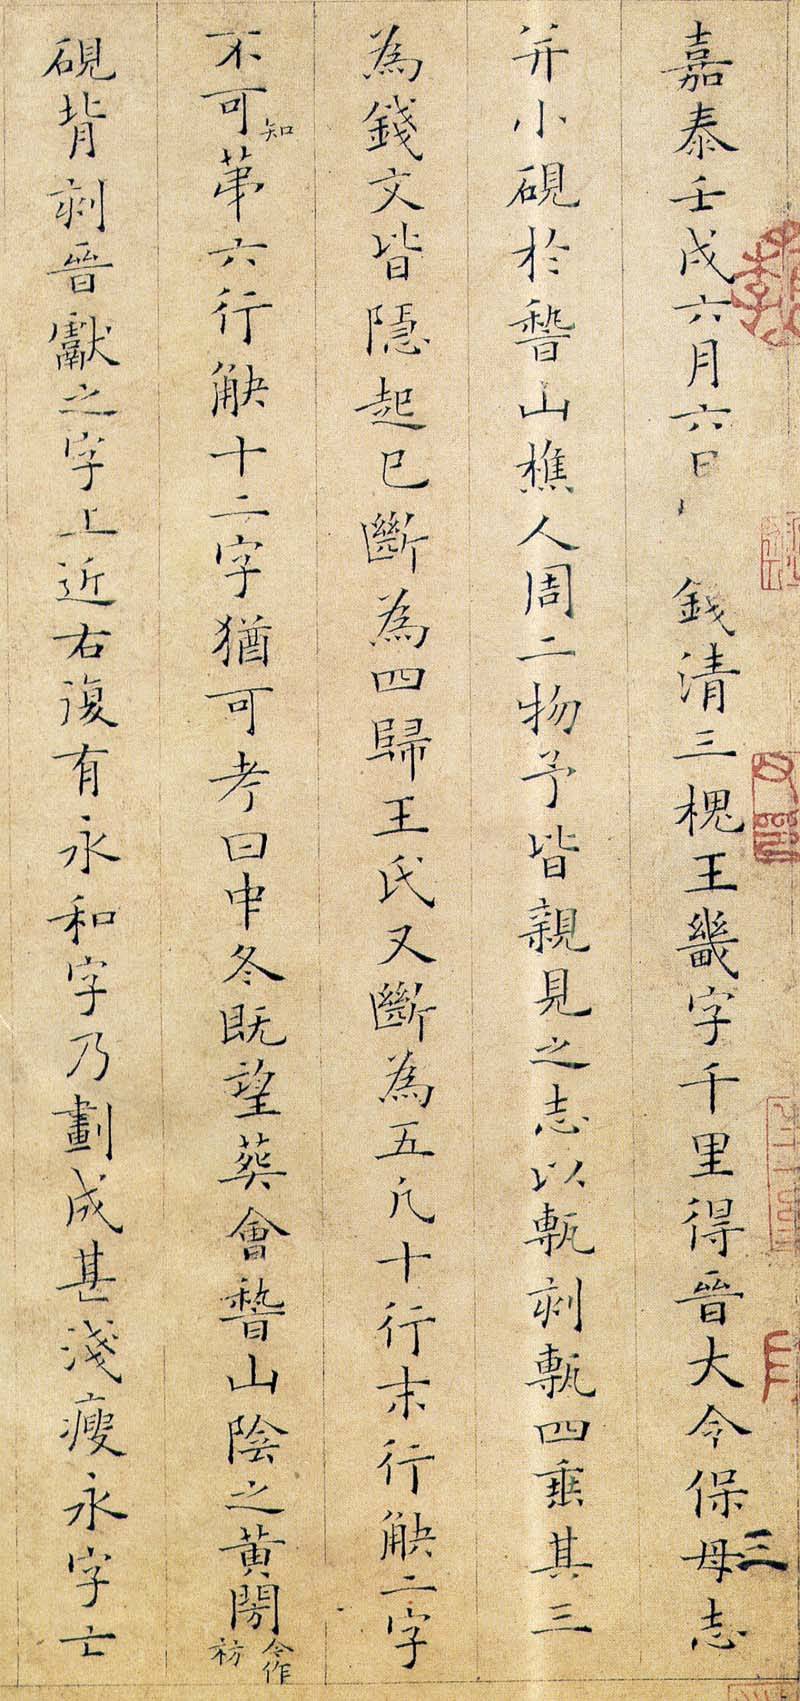 嘉泰壬戌六月六日錢清三槐王畿字千里得晉大令保母志
三
并小硯於稽山樵人周二物予皆親見之志以甎刻甎四垂其三
為錢文皆隱起已斷為四歸王氏又斷為五凡十行末行觖二字
不可知第六行觖十二字猶可考曰中冬既望葬會稽山陰之黃閍今作祊
硯背刻晉獻之字上近右復有永和字乃劃成甚淺瘦永字亡